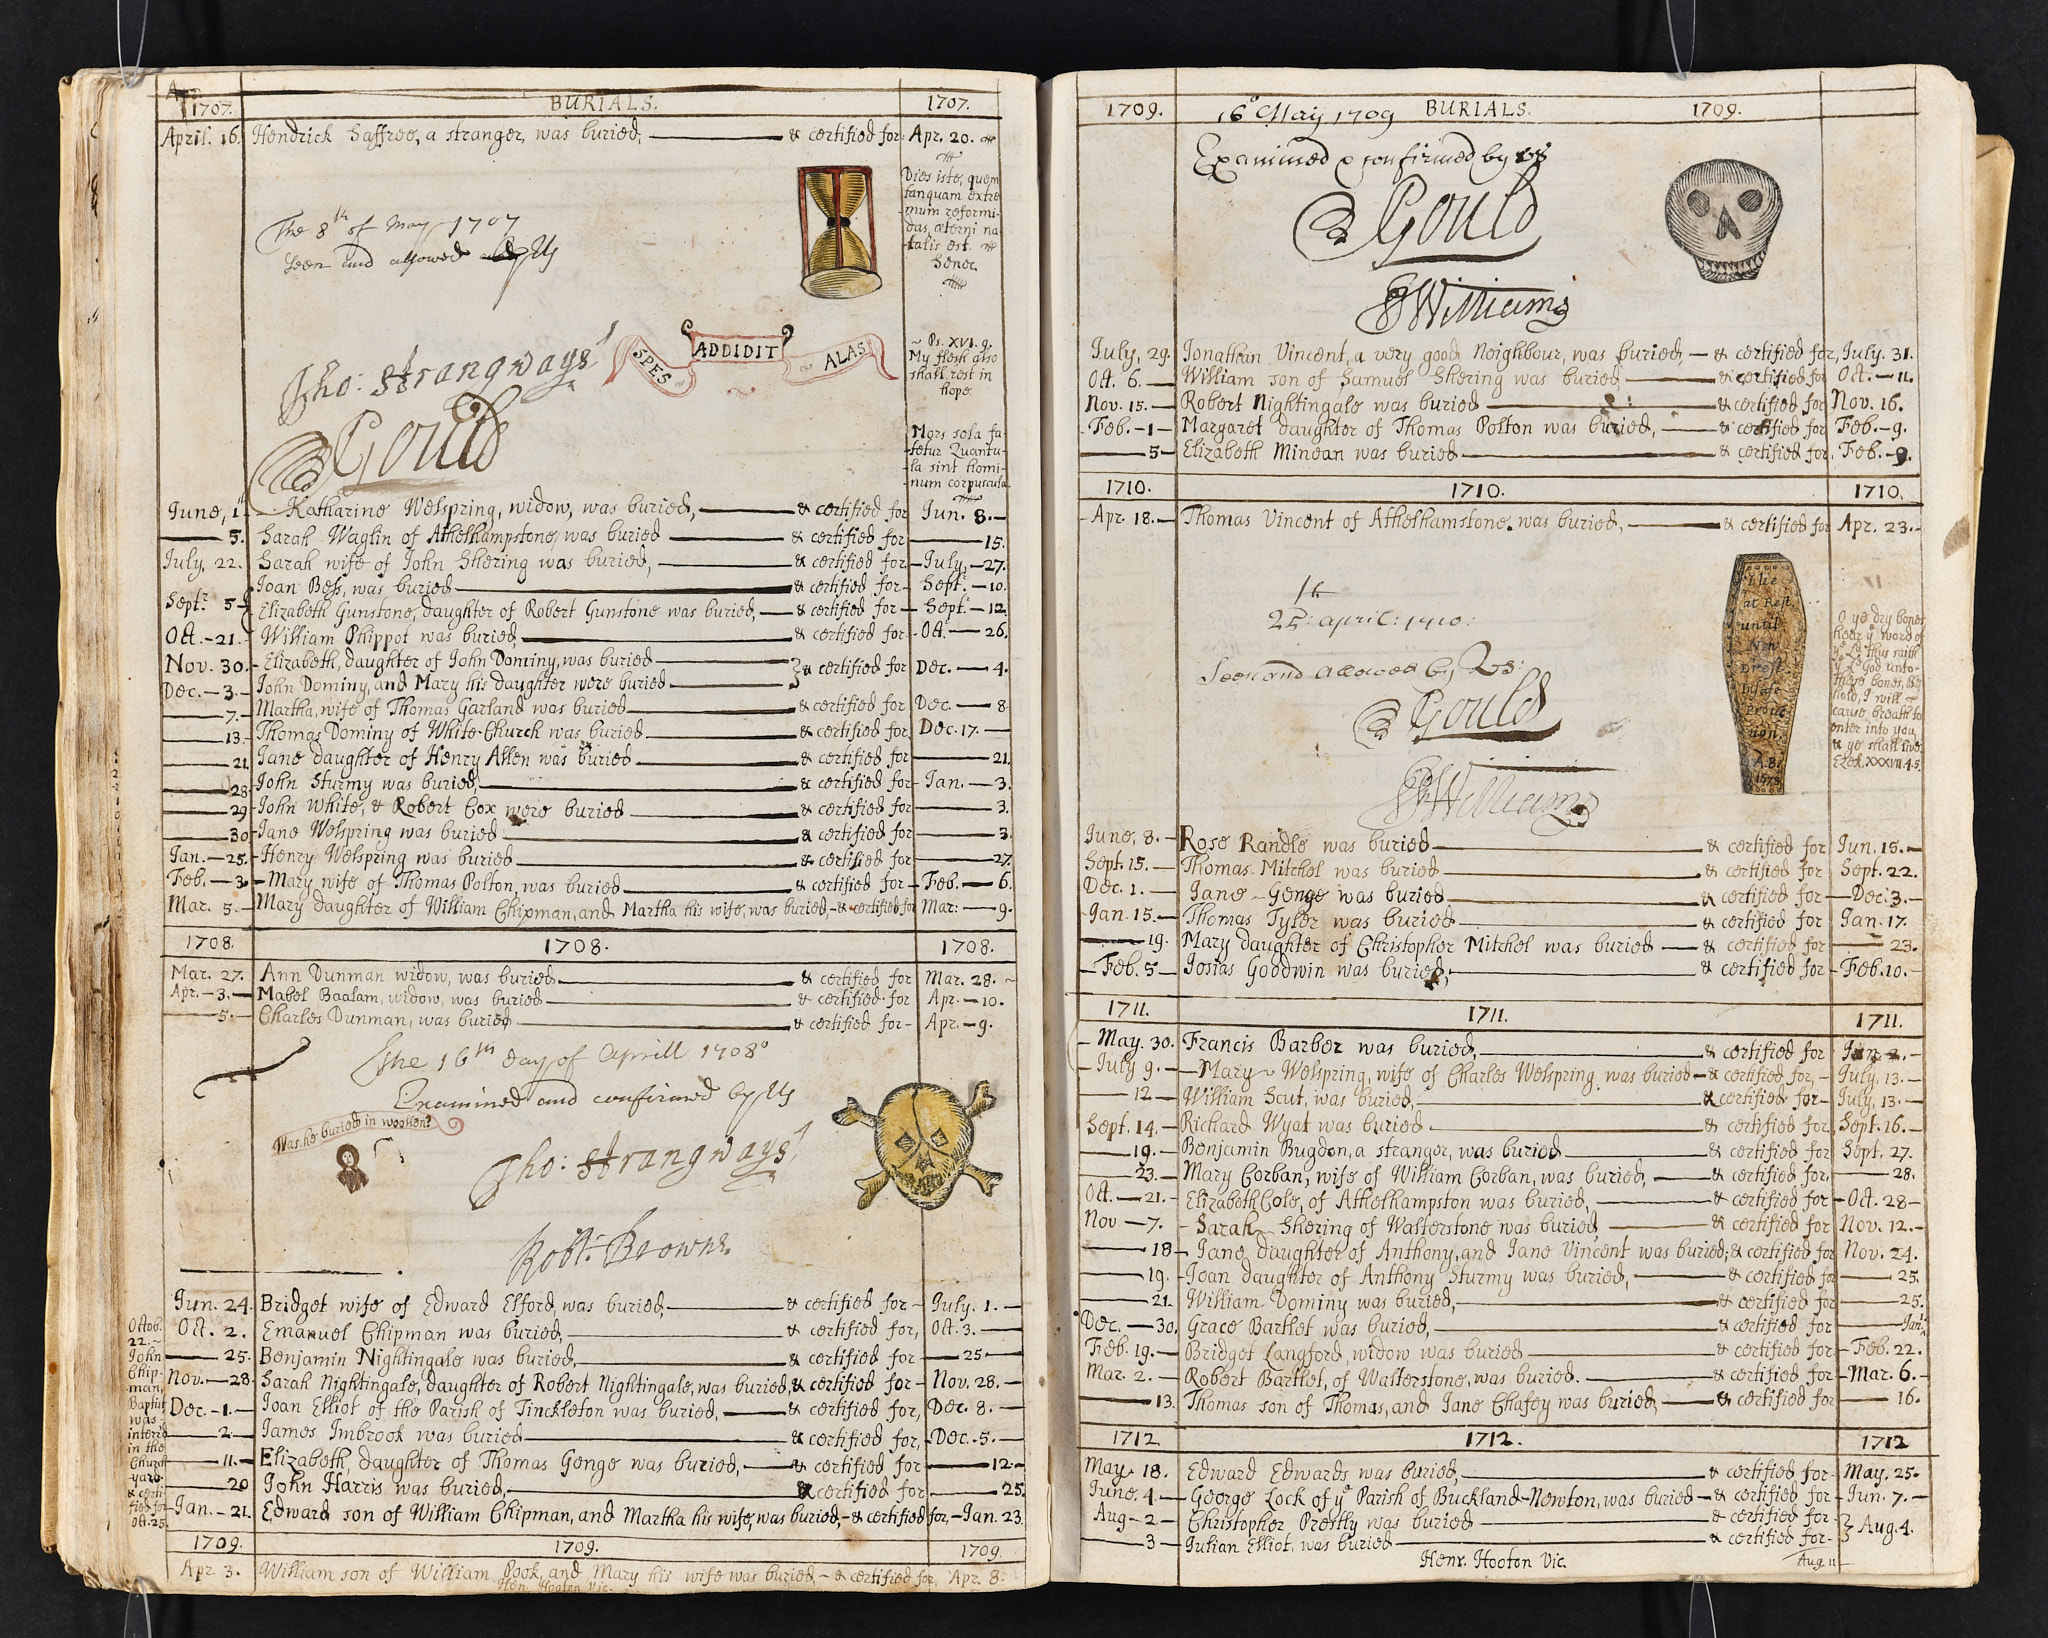 1707. BURIALS. 1707.
April. 16. Hendrick Saffree, a stranger, was buried, & certified for Apr. 20.
Dies iste, quem
tanquam extre-
mum reformi-
das, æterni na-
talis est.
Senec.
The 8th of May 1707
Seen and allowed by Us
SPES ADDIDIT ALAS
Ps. XVI. 9.
My flesh also
shall rest in
hope.
Tho: Strangways
Gould
Mors sola fa-
tetur Quantu-
la sint homi-
num corpuscula.
June, 1. Katharine Welspring, widow, was buried, & certified for Jun. 8.
5. Sarah Waglin of Athelhampstone, was buried & certified for 15.
July, 22. Sarah wife of John Shering was buried, & certified for July, 27.
Sept.r 5 Joan Bess, was buried & certified for Sept. 10.
Elizabeth Gunstone, daughter of Robert Gunstone was buried, & certified for Sept. 12.
Oct. 21. William Phippot was buried, & certified for Oct. 26.
Nov. 30. Elizabeth, daughter of John Dominy, was buried & certified for Dec. 4.
Dec. 3. John Dominy, and Mary his daughter were buried
7. Martha, wife of Thomas Garland was buried & certified for Dec. 8
13. Thomas Dominy of White-Church was buried & certified for Dec. 17.
21. Jane daughter of Henry Allen was buried & certified for 21.
28. John Sturmy was buried, & certified for Jan. 3.
29 John White, & Robert Cox were buried & certified for 3.
30 Jane Welspring was buried & certified for 3.
Jan. 25. Henry Welspring was buried & certified for 27.
Feb. 3. Mary wife of Thomas Polton, was buried & certified for Feb. 6.
Mar. 5. Mary daughter of William Chipman, and Martha his wife, was buried, & certified for Mar: 9.
1708. 1708. 1708.
Mar. 27. Ann Dunman widow, was buried & certified for Mar. 28.
Apr. 3. Mabel Baalam, widow, was buried & certified for Apr. 10.
5. Charles Dunman, was buried & certified for Apr. 9.
The 16th day of Aprill 1708
Examined and confirmed by Us
Was he buried in woollen?
Tho: Strangways
Robt: Browne.
Jun. 24. Bridget wife of Edward Elford, was buried, & certified for July. 1.
Oct. 2. Emanuel Chipman was buried, & certified for, Oct. 3.
25. Benjamin Nightingale was buried, & certified for 25
Nov. 28. Sarah Nightingale, daughter of Robert Nightingale, was buried, & certified for Nov. 28.
Dec. 1. Joan Elliot of the Parish of Tinckleton was buried, & certified for, Dec. 8.
2. James Imbrook was buried & certified for, Dec. 5.
11. Elizabeth, daughter of Thomas Genge was buried, & certified for 12.
20 John Harris was buried, & certified for 25.
Jan. 21. Edward son of William Chipman, and Martha his wife, was buried, & certified for, Jan. 23.
Octob.
22.
John
Chip-
man,
Baptist
was
interr'd
in the
Church
yard
& certi-
fied for
Oct. 25.
1709. 1709. 1709.
Apr. 3. William son of William Pook, and Mary his wife was buried, & certified for, Apr. 8.
Hen. Hooton Vic.
1709. 16o May 1709 BURIALS. 1709.
Examined & confirmed by us
Gould
Williams
July, 29. Jonathan Vincent, a very good Neighbour, was buried, & certified for, July. 31.
Oct. 6. William son of Samuel Shering was buried & certified for Oct. 11.
Nov. 15. Robert Nightingale was buried & certified for Nov. 16.
Feb. 1 Margaret daughter of Thomas Polton was buried, & certified for Feb. 9.
5 Elizabeth Minean was buried & certified for, Feb. 9.
1710. 1710. 1710.
Apr. 18. Thomas Vincent of Athelhamstone, was buried, & certified for Apr. 23.
25: april: 1710:
Seen and Allowed by Us:
Gould
Williams
Lhe
at Rest
until
New
Drest
A.B.
1678
O ye dry bones
hear ye word of
ye Ld thus saith
ye Ld God unto
these bones, be-
hold, I will
cause breath to
enter into you,
& ye shall live.
Ezek. XXXVII. 4.5.
June, 8. Rose Randle was buried & certified for Jun. 15.
Sept. 15. Thomas Mitchel was buried & certified for Sept. 22.
Dec. 1. Jane Genge was buried & certified for Dec. 3.
Jan. 15. Thomas Tyler was buried & certified for Jan. 17.
19. Mary daughter of Christopher Mitchel was buried & certified for 23.
Feb. 5 Josias Goodwin was buried, & certified for Feb. 10.
1711. 1711. 1711.
May. 30. Francis Barber was buried, & certified for Jun. 2.
July 9. Mary Welspring, wife of Charles Welspring was buried & certified for, July, 13.
12 William Scut, was buried, & certified for July, 13.
Sept. 14. Richard Wyat was buried & certified for Sept. 16.
19. Benjamin Bugdon, a stranger, was buried & certified for Sept. 27.
23. Mary Corban, wife of William Corban, was buried, & certified for 28.
Oct. 21. Elizabeth Cole, of Athelhampston was buried, & certified for Oct. 28
Nov 7. Sarah Shering of Walterstone was buried, & certified for Nov. 12.
18 Jane, daughter of Anthony, and Jane Vincent was buried, & certified for Nov. 24.
19. Joan daughter of Anthony Sturmy was buried, & certified for 25.
21. William Dominy was buried, & certified for 25.
Dec. 30. Grace Bartlet was buried, & certified for Jan.
Feb. 19. Bridget Langford, widow was buried & certified for Feb. 22.
Mar. 2. Robert Bartlet, of Walterstone, was buried. & certified for Mar. 6.
13. Thomas son of Thomas, and Jane Chafey was buried, & certified for 16.
1712 1712. 1712
May. 18. Edward Edwards was buried, & certified for May. 25.
June, 4. George Lock of ye Parish of Buckland-Newton, was buried & certified for Jun. 7.
Aug 2 Christopher Prestly was buried & certified for Aug. 4.
3 Julian Elliot, was buried & certified for
Henr. Hooton Vic. Aug. 11